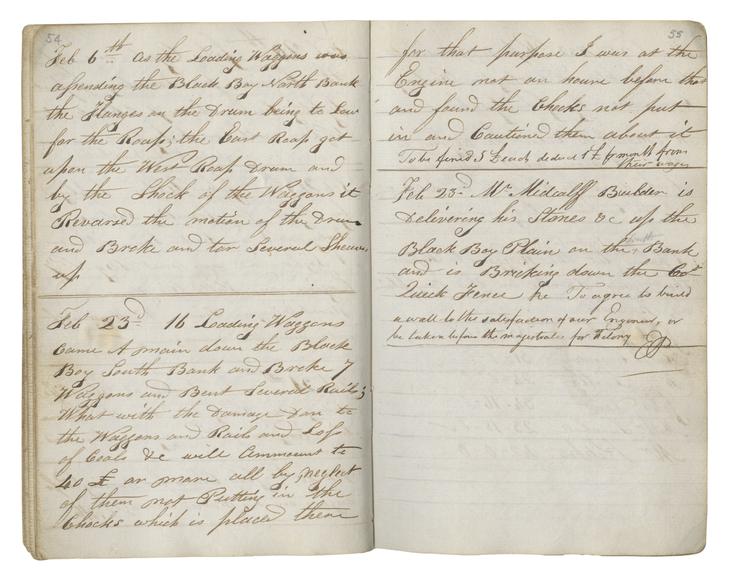 54
Feb 6th As the Loading Waggons was
assending the Black Boy North Bank
the Flanges on the Drum being to Low
for the Roap; the East Roap got
upon the West Roap Drum and
by the Shock of the Waggons it
Revarsed the motion of the Drum
and Broke and tor Several Sheaves
up
Feb 23d 16 Loading Waggons
Came A main down the Black
Boy South Bank and Broke 7
Waggons and Bent Several Rails;
What with the Damage Don to
the Waggons and Rails and Loss
of Coals &c will Ammount to
40 £ or more all by neglect
of them not Putting in the
Chocks which is placed there
55
for that purpose I was at the
Engine not an houre before that
and found the Chocks not put
in and Cautined them about it
To be fined 5 £ each deduct 1 £ p month from
their wages
Feb 23d Mr Midcalff Builder is
Delivering his Stones &c up the
Black Boy Plain on the South Bank
and is Bricking down the
Quick Fence he To agree to build
a wall to the satisfaction of our Engineer, or
be taken before the magistrates for Felony